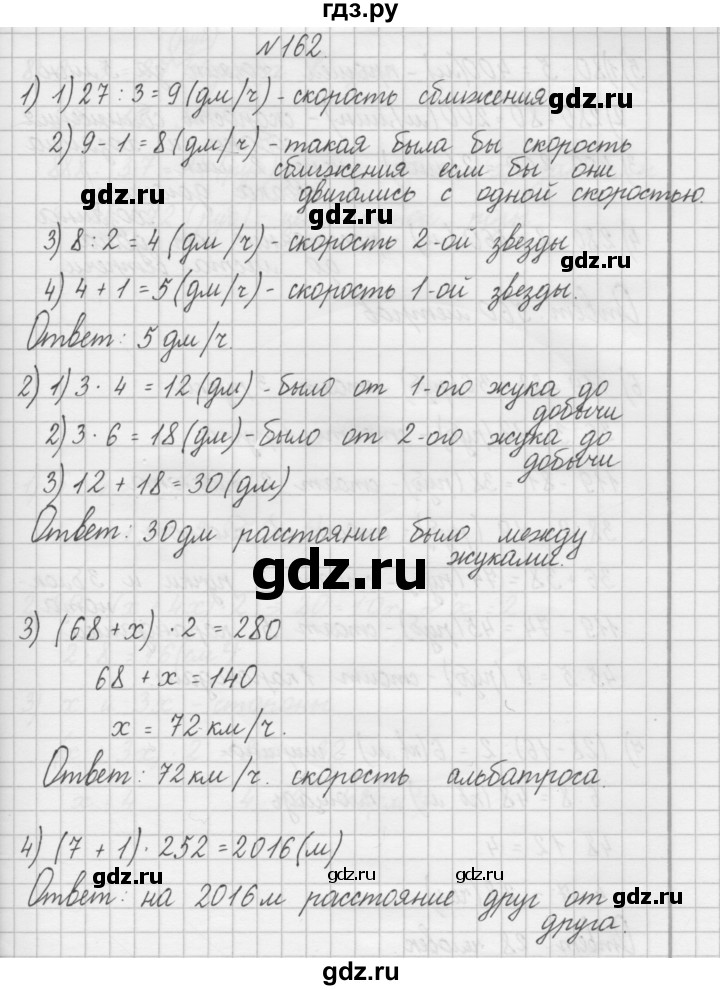 гдз.ру
№162.
1) 1) 27 : 3 = 9 (дм/ч) - скорость сближения
gdz.ru
2) 9 - 1 = 8 (дм/ч) - такая была бы скорость
сближения если бы они
gdz.ru
двигались с одной скоростью.
gdz.ru
3) 8 : 2 = 4 (дм/ч) - скорость 2-ой звезды
gdz.ru
4) 4 + 1 = 5 (дм/ч) - скорость 1-ой звезды.
Ответ: 5 дм/ч.
2) 1) 3 · 4 = 12 (дм) - было от 1-ого жука до
добычи
2) 3 · 6 = 18 (дм) - было от 2-ого жука до
добычи
3) 12 + 18 = 30 (дм)
Ответ: 30 дм расстояние было между
жуками.
gdz.ru
3) (68 + x) · 2 = 280
68 + x = 140
x = 72 км/ч.
Ответ: 72 км/ч. скорость альбатроса.
4) (7 + 1) · 252 = 2016 (м)
gdz.ru
gdz.ru
gdz.ru
gdz.ru
Ответ: на 2016 м расстояние друг от
друга.
gdz.ru